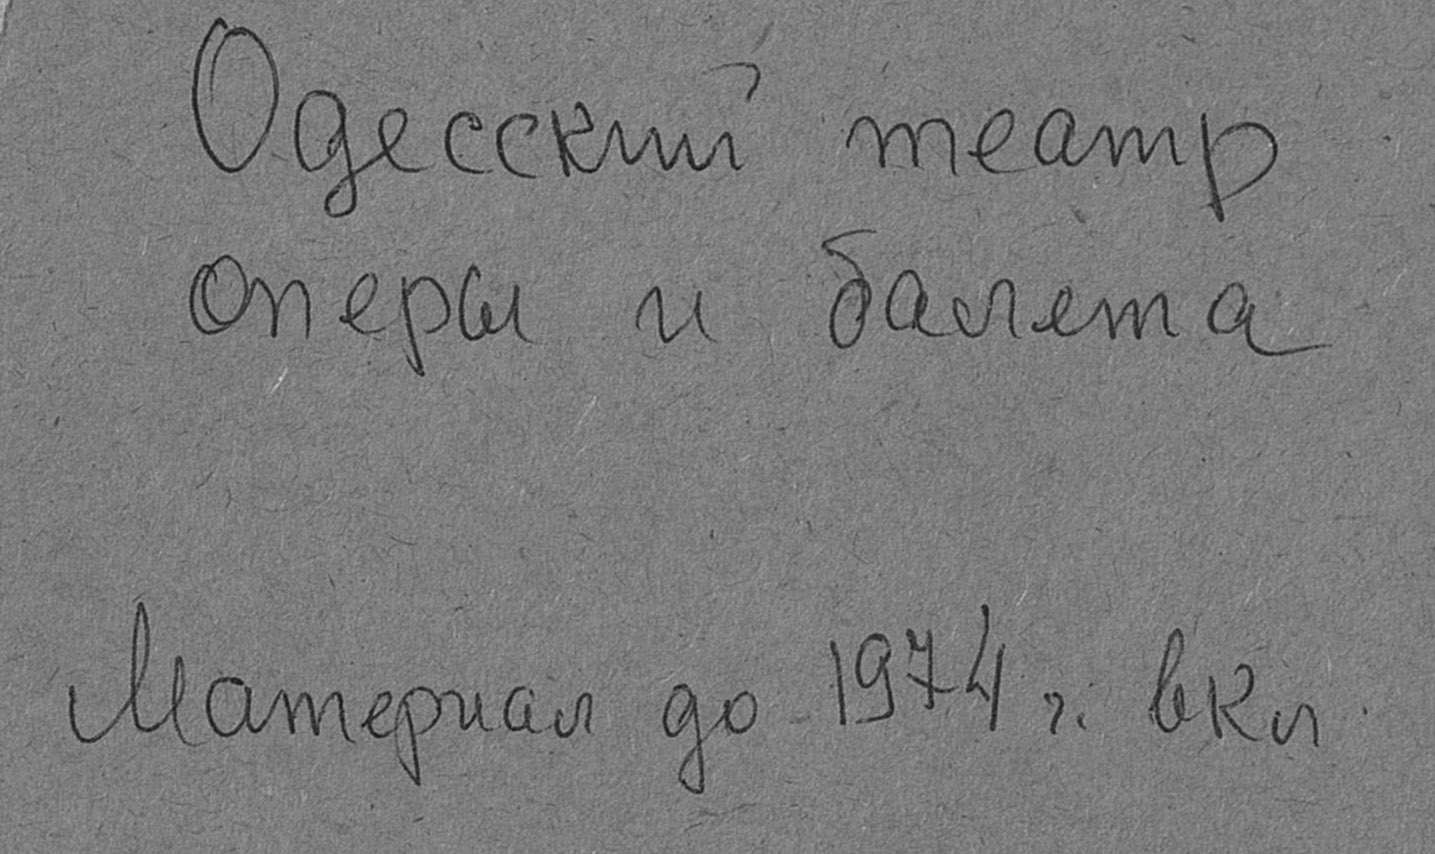 Одесский театр
оперы и балета
Материал до 1974 г. вкл.